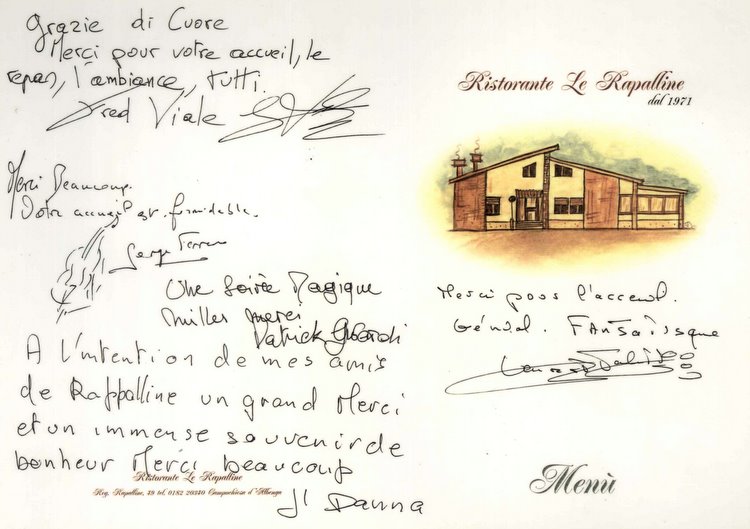 Grazie di Cuore
Merci pour votre accueil, le
repas, l'ambiance, tutti.
Fred Viale
Merci Beaucoup.
Votre accueil est formidable.
Serge
Une Soirée Magique
milles merci
Patrick
A l'intention de mes amis
de Rappalline un grand Merci
et un immense souvenir de
bonheur Merci beaucoup
Ristorante Le Rapalline
Reg. Rapalline, 49 tel. 0182 20340 Campochiesa d'Albenga
JL Danna
Ristorante Le Rapalline
dal 1971
Merci pour l'accueil.
Génial. Fantastique
Menù